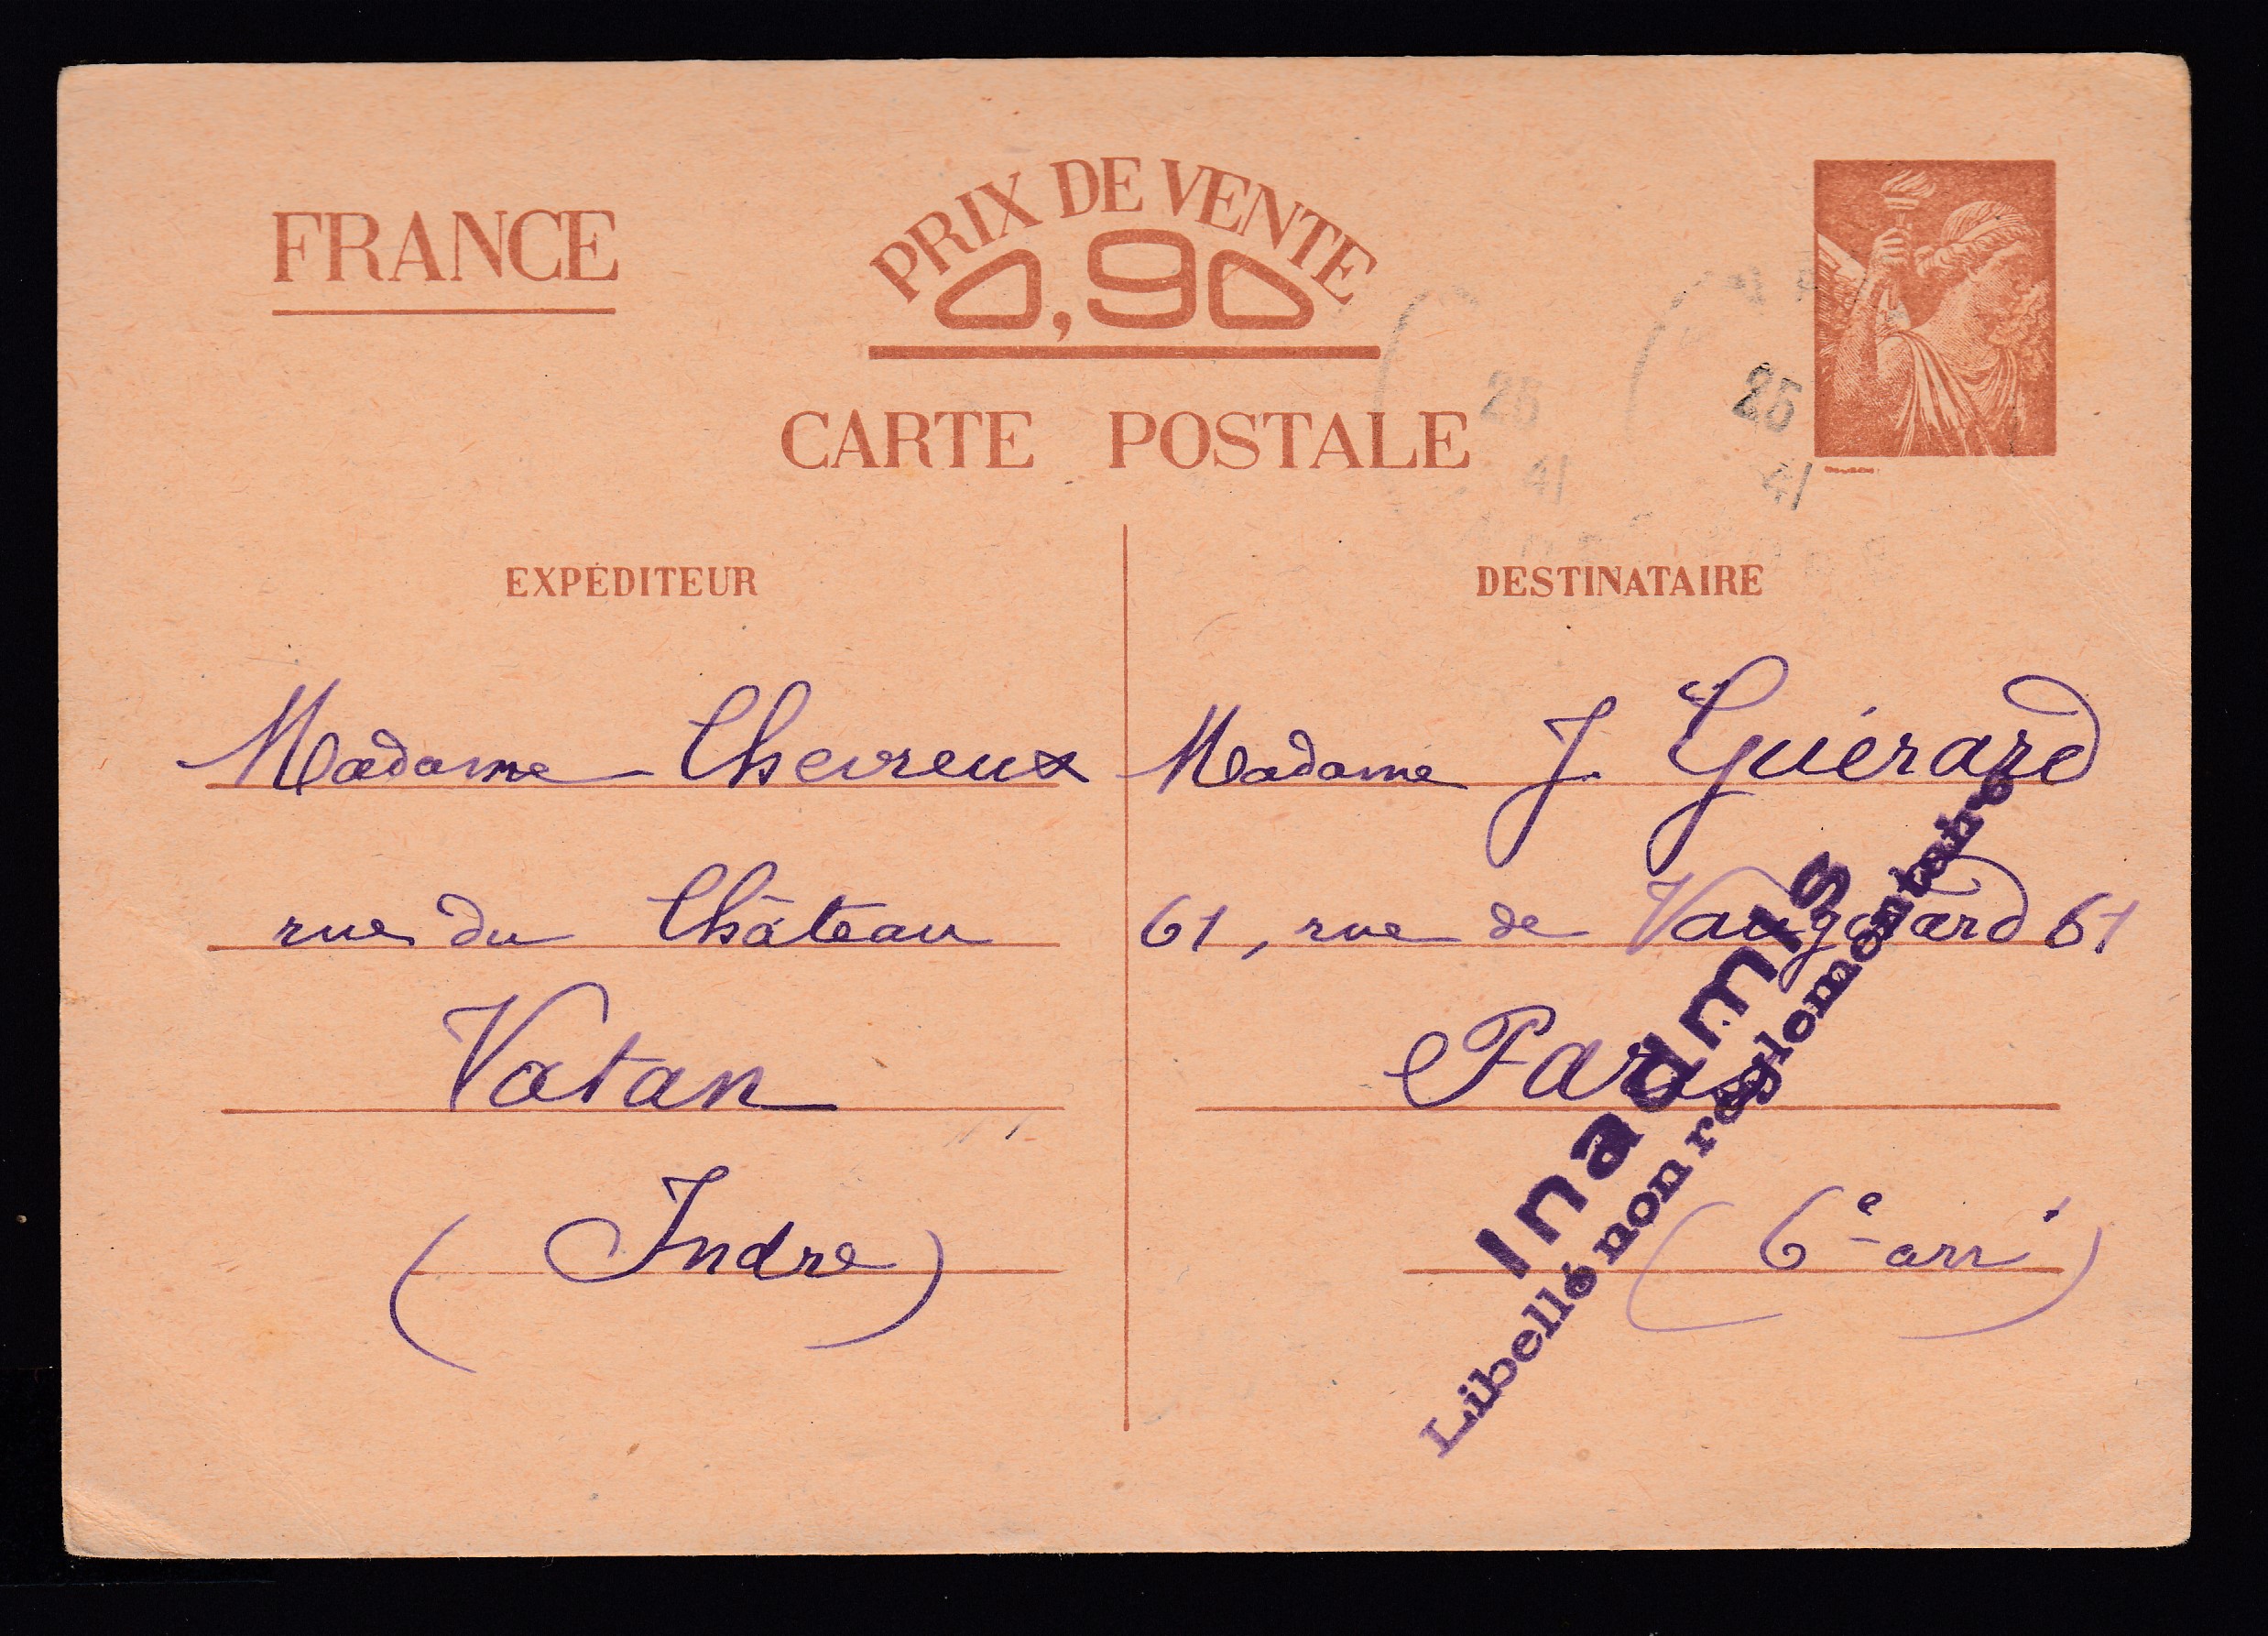 FRANCE
PRIX DE VENTE
0,90
CARTE POSTALE
25
41
25
41
EXPÉDITEUR
Madame Chevreux
rue du Château
Vatan
(Indre)
DESTINATAIRE
Madame J. Guérard
61, rue de Vaugirard 61
Paris
(6e arrt)
Inadmis
Libellé non réglementaire